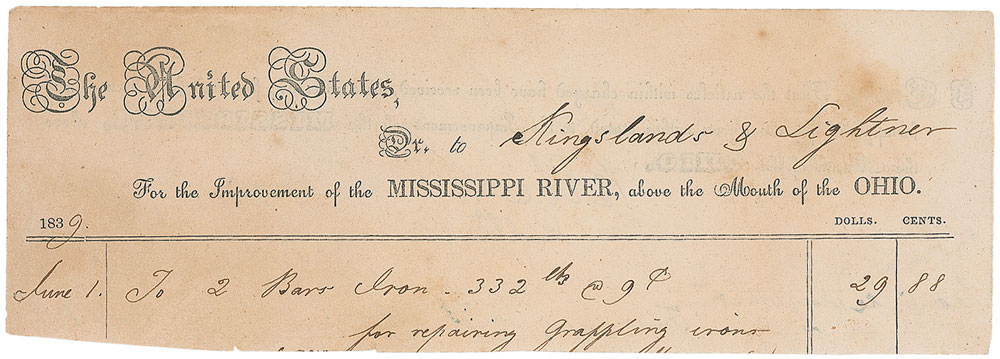 The United States,
Dr. to Kingslands & Lightner
For the Improvement of the MISSISSIPPI RIVER, above the Mouth of the OHIO.
1839. DOLLS. CENTS.
June 1. To 2 Bars Iron - 332 lbs @ 9¢ 29 88
for repairing Grappling irons